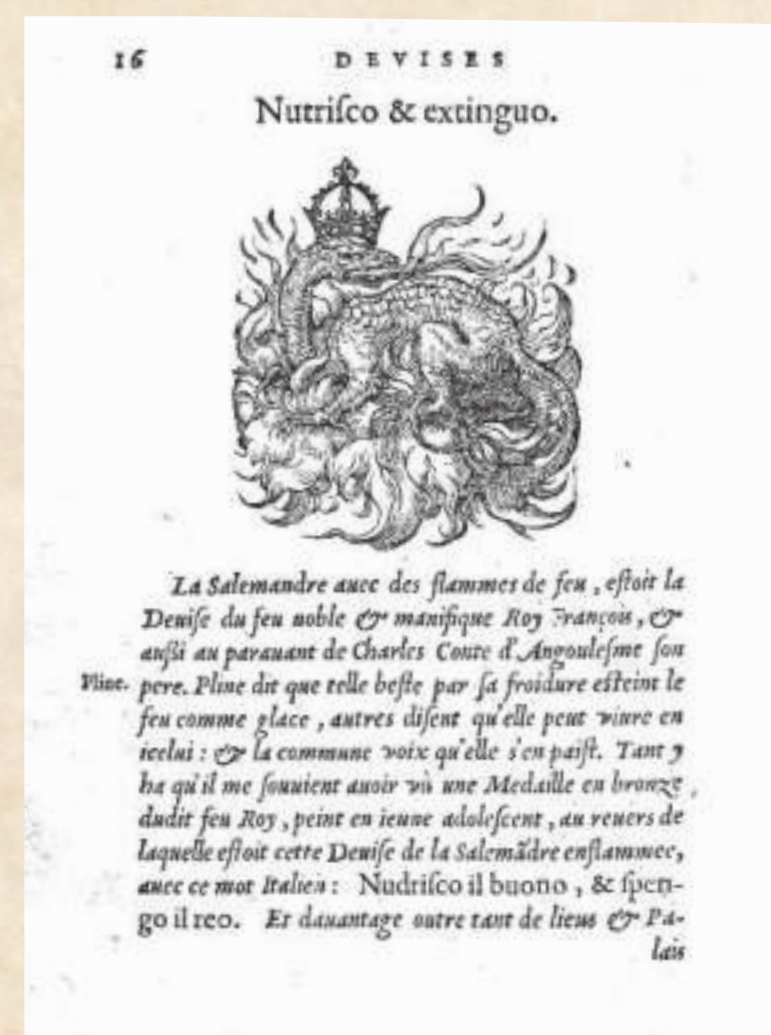 16 DEVISES
Nutriſco & extinguo.
La Salemandre auec des flammes de feu, eſtoit la
Deuiſe du feu noble & manifique Roy François, &
außi au parauant de Charles Conte d'Angouleſme ſon
Pline. pere. Pline dit que telle beſte par ſa froidure eſteint le
feu comme glace, autres diſent qu'elle peut viure en
icelui: & la commune voix qu'elle s'en paiſt. Tant y
ha qu'il me ſouuient auoir vù une Medaille en bronze,
dudit feu Roy, peint en ieune adoleſcent, au reuers de
laquelle eſtoit cette Deuiſe de la Salemãdre enflammee,
auec ce mot Italien: Nudriſco il buono, & ſpen-
go il reo. Et dauantage outre tant de lieus & Pa-
lais